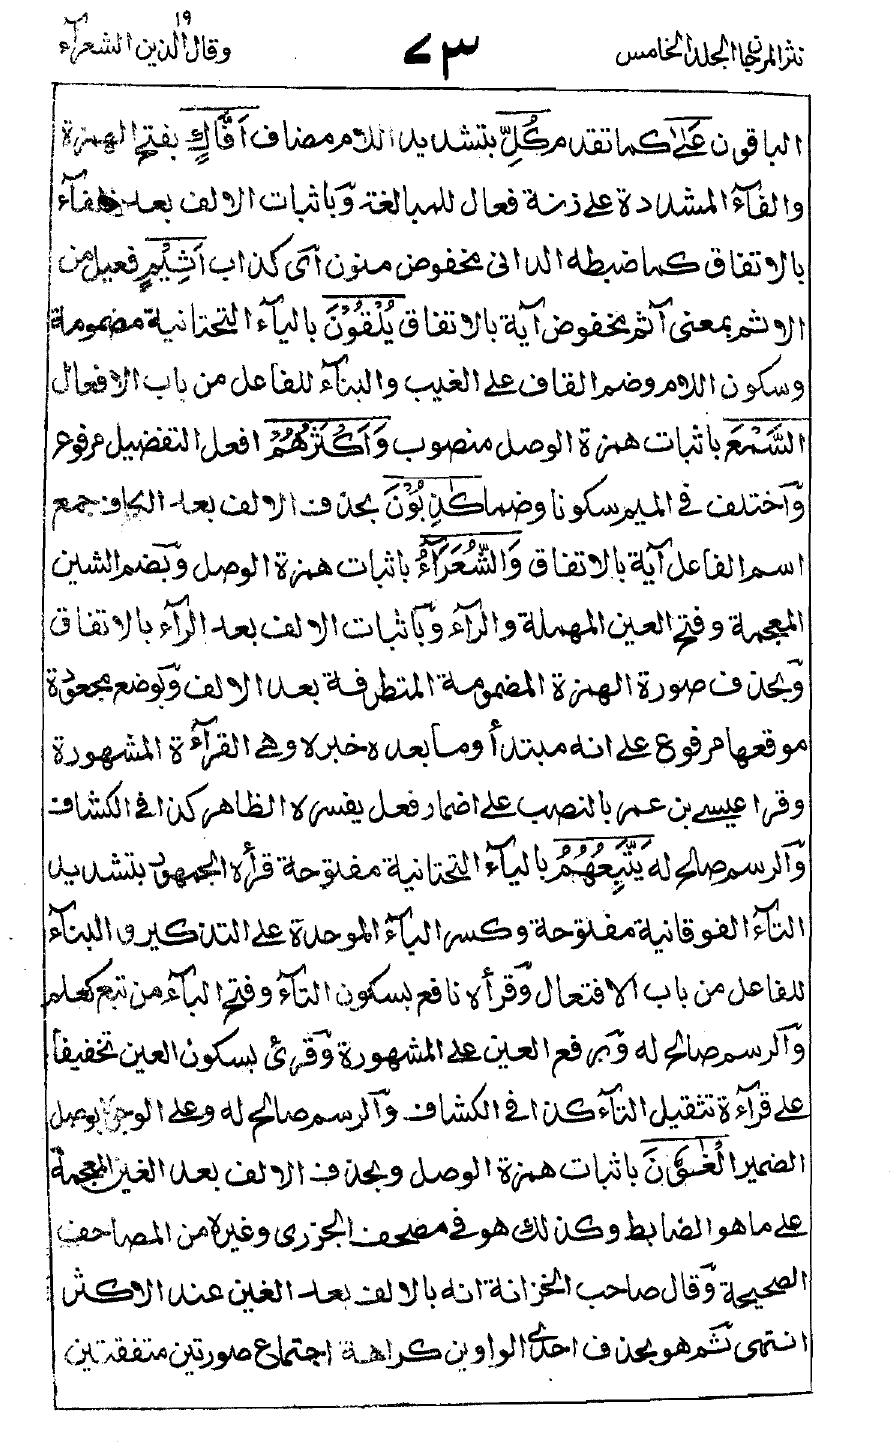 نثر المرجان الجلد الخامس ٧٣ وقال الذين ١٩ الشعرآء
الباقون عَلٰى كما تقدم كُلِّ بتشديد اللام مضاف اَفَّاكٍ بفتح الهمزة
والفآء المشددة على زنة فعال للمبالغة وباثبات الالف بعد الفآء
بالاتفاق كما ضبطه الدانى مخفوض منون آى كذاب اَثِيْمٍ فعيل من
الاثم بمعنى آثم مخفوض آية بالاتفاق يُلْقُوْنَ باليآء التحتانية مضمومة
وسكون اللام وضم القاف على الغيب والبنآء للفاعل من باب الافعال
السَّمْعَ باثبات همزة الوصل منصوب وَاَكْثَرُهُمْ افعل التفضيل مرفوع
وآختلف فى الميم سكونا وضما كٰذِبُوْنَ بحذف الالف بعد الكاف جمع
اسم الفاعل آية بالاتفاق وَالشُّعَرَآءُ باثبات همزة الوصل وبضم الشين
المعجمة وفتح العين المهملة والرآء وباثبات الالف بعد الرآء بالاتفاق
وبحذف صورة الهمزة المضمومة المتطرفة بعد الالف وبوضع مجعودة
موقعها مرفوع على انه مبتدأ وما بعده خبره وهى القرآءة المشهورة
وقرا عيسى بن عمر بالنصب على اضمار فعل يفسره الظاهر كذا فى الكشاف
وآلرسم صالح له يَتَّبِعُهُمُ باليآء التحتانية مفتوحة قرأه الجمهور بتشديد
التآء الفوقانية مفتوحة وكسر البآء الموحدة على التذكير والبنآء
للفاعل من باب الافتعال وقرأه نافع بسكون التآء وفتح البآء من تبع كعلم
وآلرسم صالح له وبرفع العين على المشهورة وقرئ بسكون العين تخفيفا
على قرآءة تثقيل التآء كذا فى الكشاف وآلرسم صالح له وعلى الوجوه بوصل
الضمير الْغَاوٗنَ باثبات همزة الوصل وبحذف الالف بعد الغين المعجمة
على ما هو الضابط وكذلك هو فى مصحف الجزرى وغيره من المصاحف
الصحيحة وقال صاحب الخزانة انه بالالف بعد الغين عند الاكثر
انتهى ثم هو بحذف احدى الواوين كراهة اجتماع صورتين متفقتين